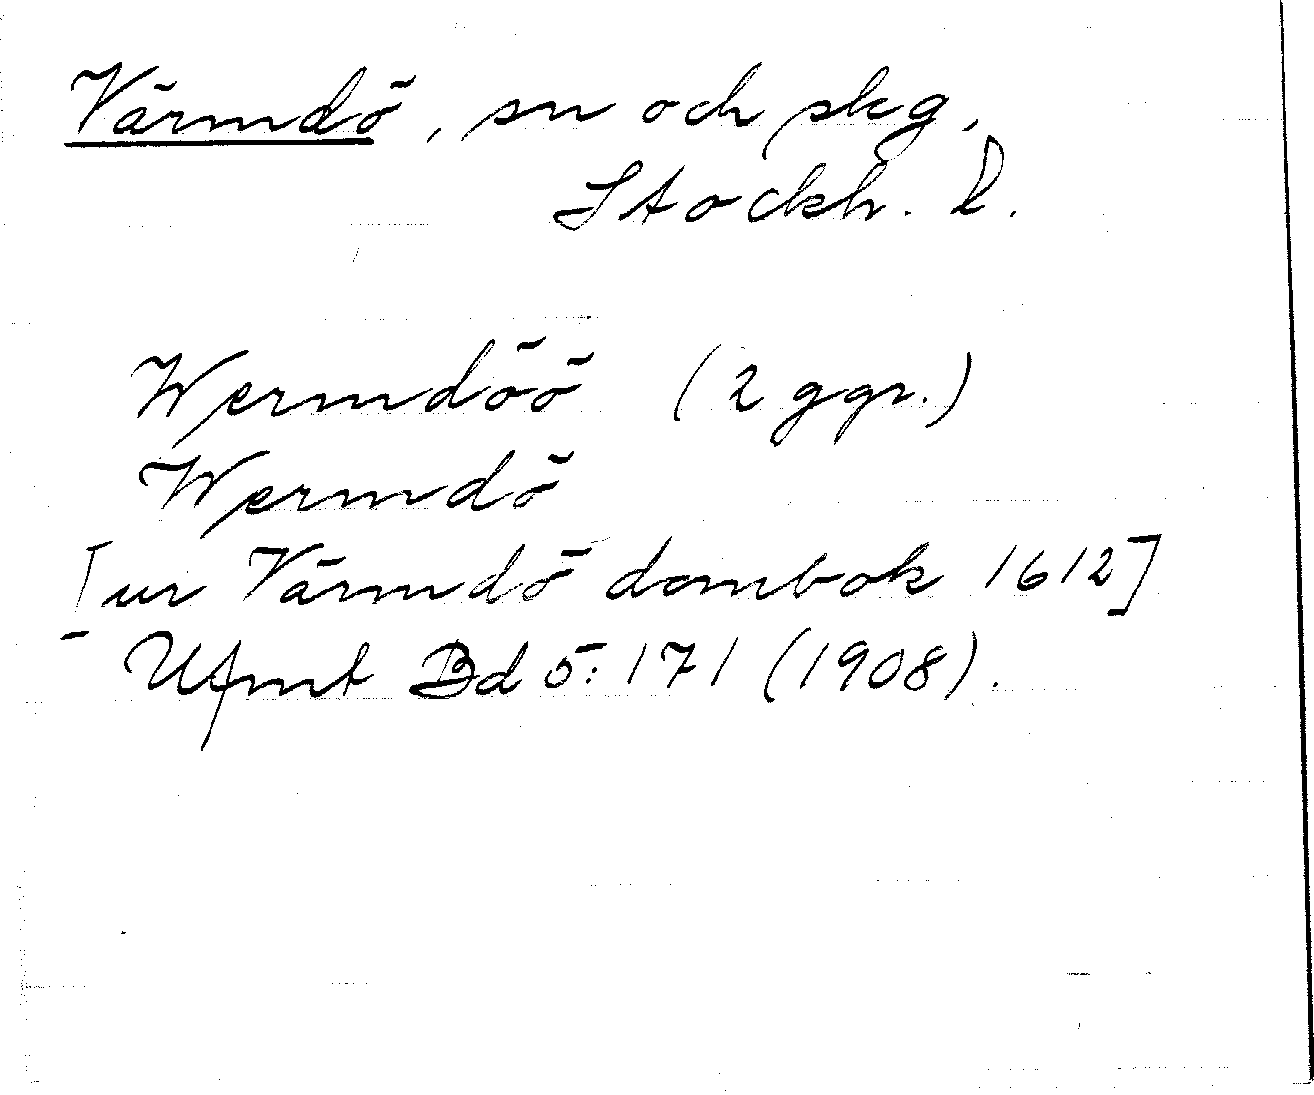 Värmdö, sn och skg,
Stockh. l.
Wermdöö (2 ggr.)
Wermdö
[ur Värmdö dombok 1612]
Ufmt Bd 5: 171 (1908).